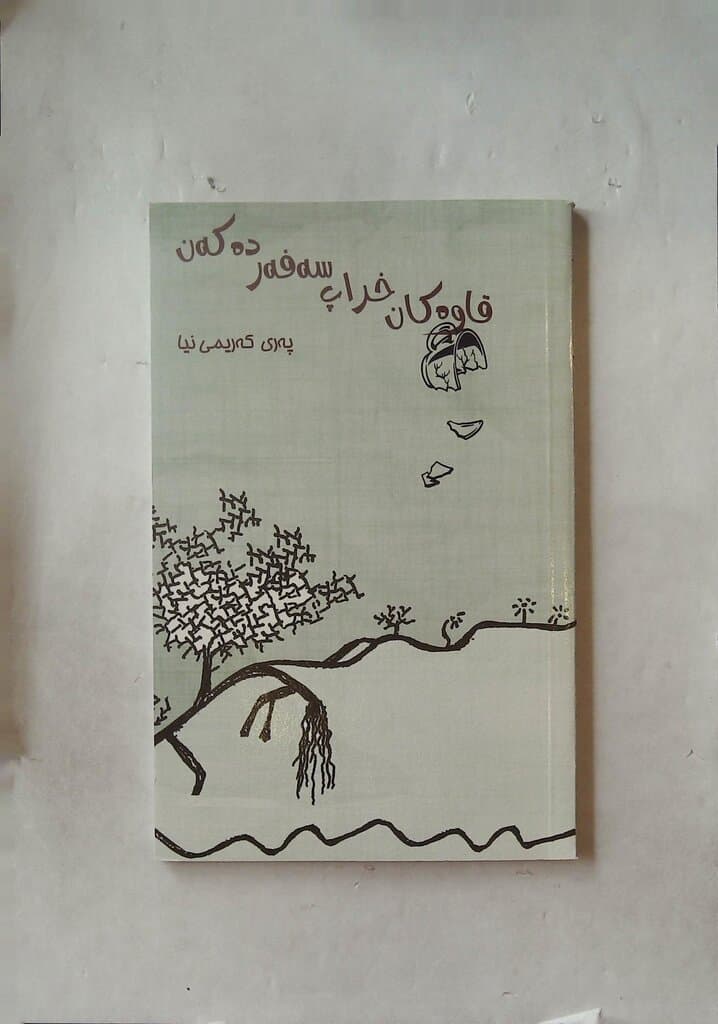 قاوەکان خراپ سەفەر دەکەن
پەری کەریمی نیا